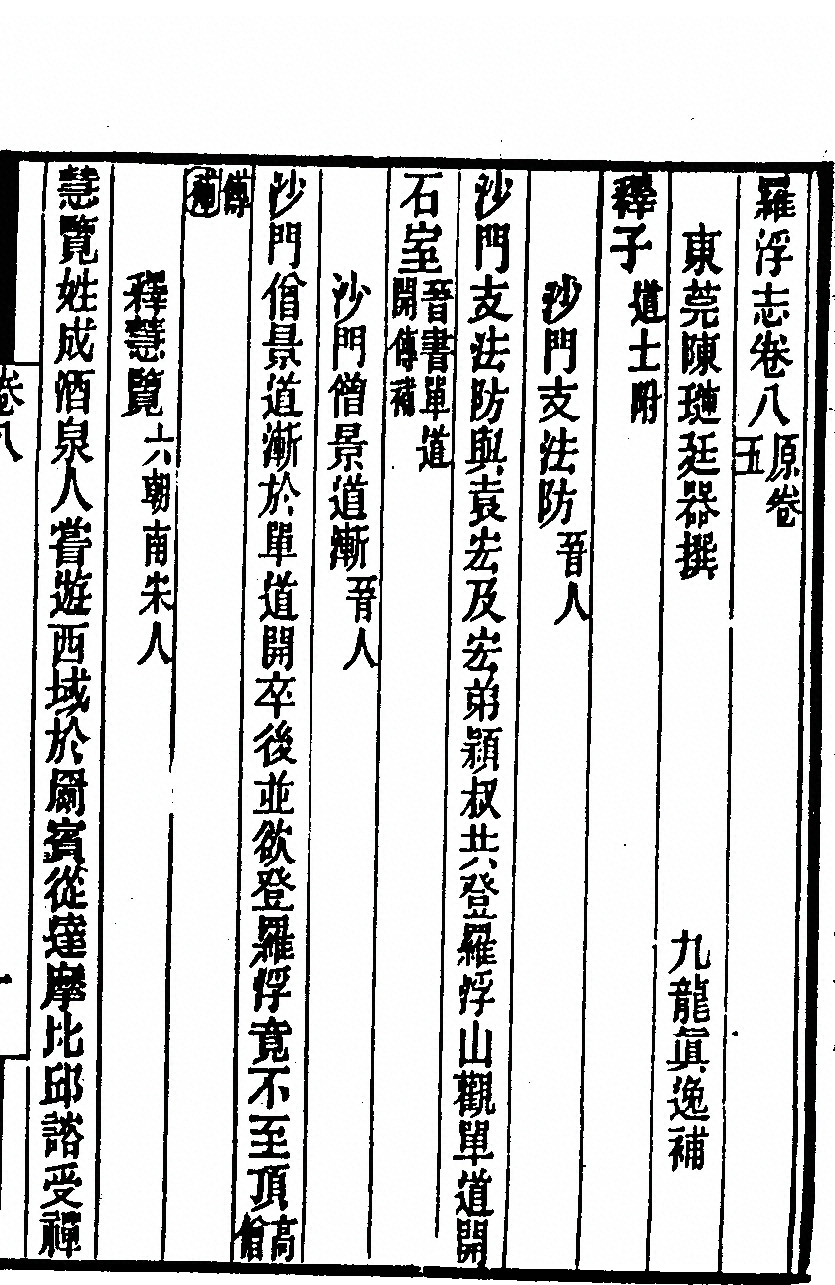 羅浮志卷八原卷五
東莞陳璉廷器撰 九龍眞逸補
釋子道士附
沙門支法防晉人
沙門支法防與袁宏及宏弟穎叔共登羅浮山觀單道開
石室晉書單道開傳補
沙門僧景道漸晉人
沙門僧景道漸於單道開卒後並欲登羅浮竟不至頂高僧
傳補
釋慧覽六朝南宋人
慧覽姓成酒泉人嘗遊西域於罽賓從達摩比邱諮受禪
卷八